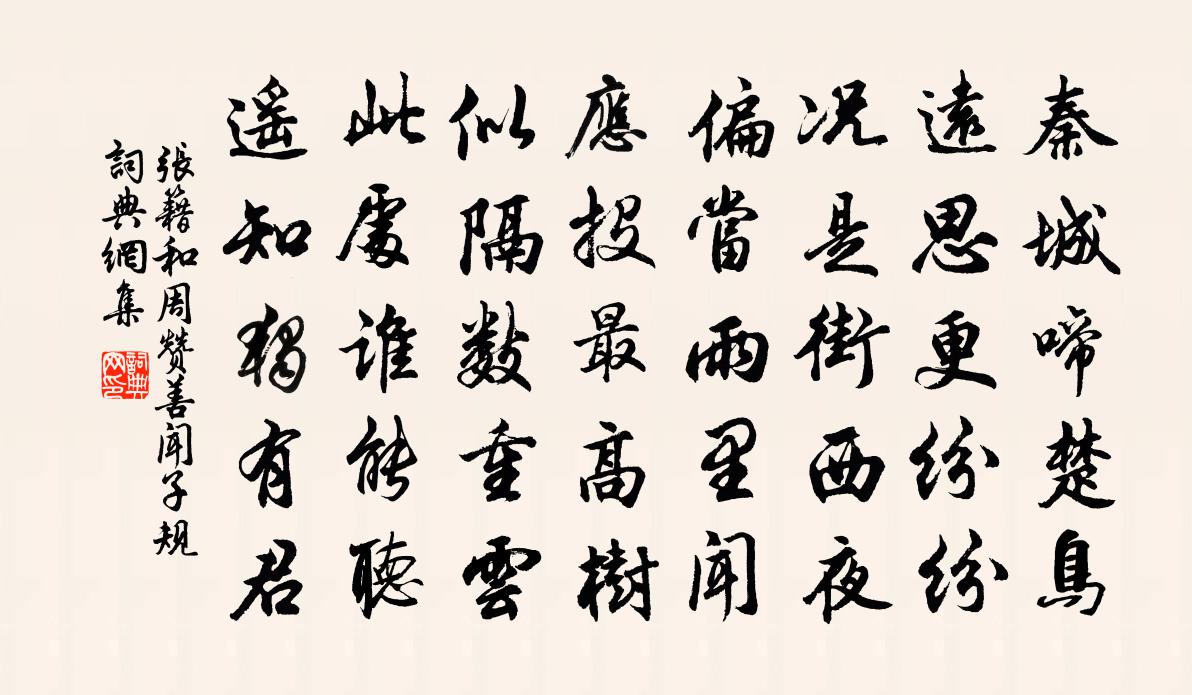 秦城啼楚鳥
遠思更紛紛
況是街西夜
偏當雨里聞
應投最高樹
似隔數重雲
此處誰能聽
遥知獨有君
張籍和周赞善聞子規
詞典網集
詞典网印